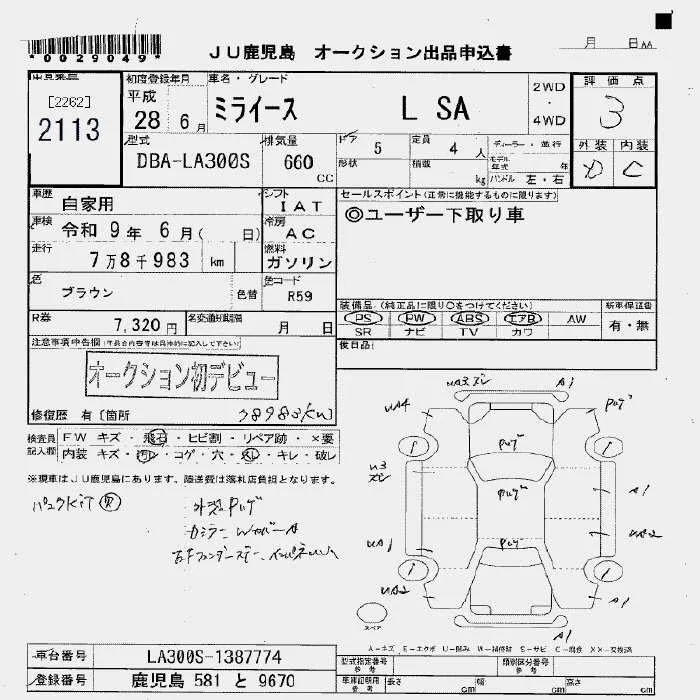 *0029049*
JU鹿児島 オークション出品申込書
月 日
[2262]
2113
初度登録年月
平成
28 6月
車名・グレード
ミライース L SA
2WD
・
4WD
評価点
3
外装 内装
D C
型式
DBA-LA300S
排気量
660 CC
ドア 5
定員 4 人
形状
積載 kg
ディーラー・並行
モデル年式 年
ハンドル 左・右
車歴
自家用
シフト
IAT
セールスポイント(正常に機能するものに限ります)
◎ユーザー下取り車
車検
令和 9年 6月( 日)
冷房
AC
走行
7万8千983 km
燃料
ガソリン
色
ブラウン
色替
色コード
R59
装備品(純正品に限り○をつけてください)
PS PW ABS エアB AW
SR ナビ TV カワ
新車保証書
有・無
R券
7,320円
名変通知期限
月 日
後日品
注意事項申告欄
オークション初デビュー
修復歴 有[箇所
78983km]
検査員記入欄
FW キズ・飛石・ヒビ割・リペア跡・×要
内装 キズ・汚レ・コゲ・穴・スレ・キレ・破レ
※現車はJU鹿児島にあります、陸送費は落札店負担となります。
パンクKIT
UA3 ズレ A1
UA4
U3
ズレ
A1
UA1
UA2
A1
A1
スペア
A-キズ E-エクボ U-凹み W-補修跡 S-サビ C-腐食 XX-交換済
車台番号
LA300S-1387774
登録番号
鹿児島 581 と 9670
型式指定番号
参考
類別区分番号
参考
車庫証明用
参考
長さ cm
幅 cm
高さ cm